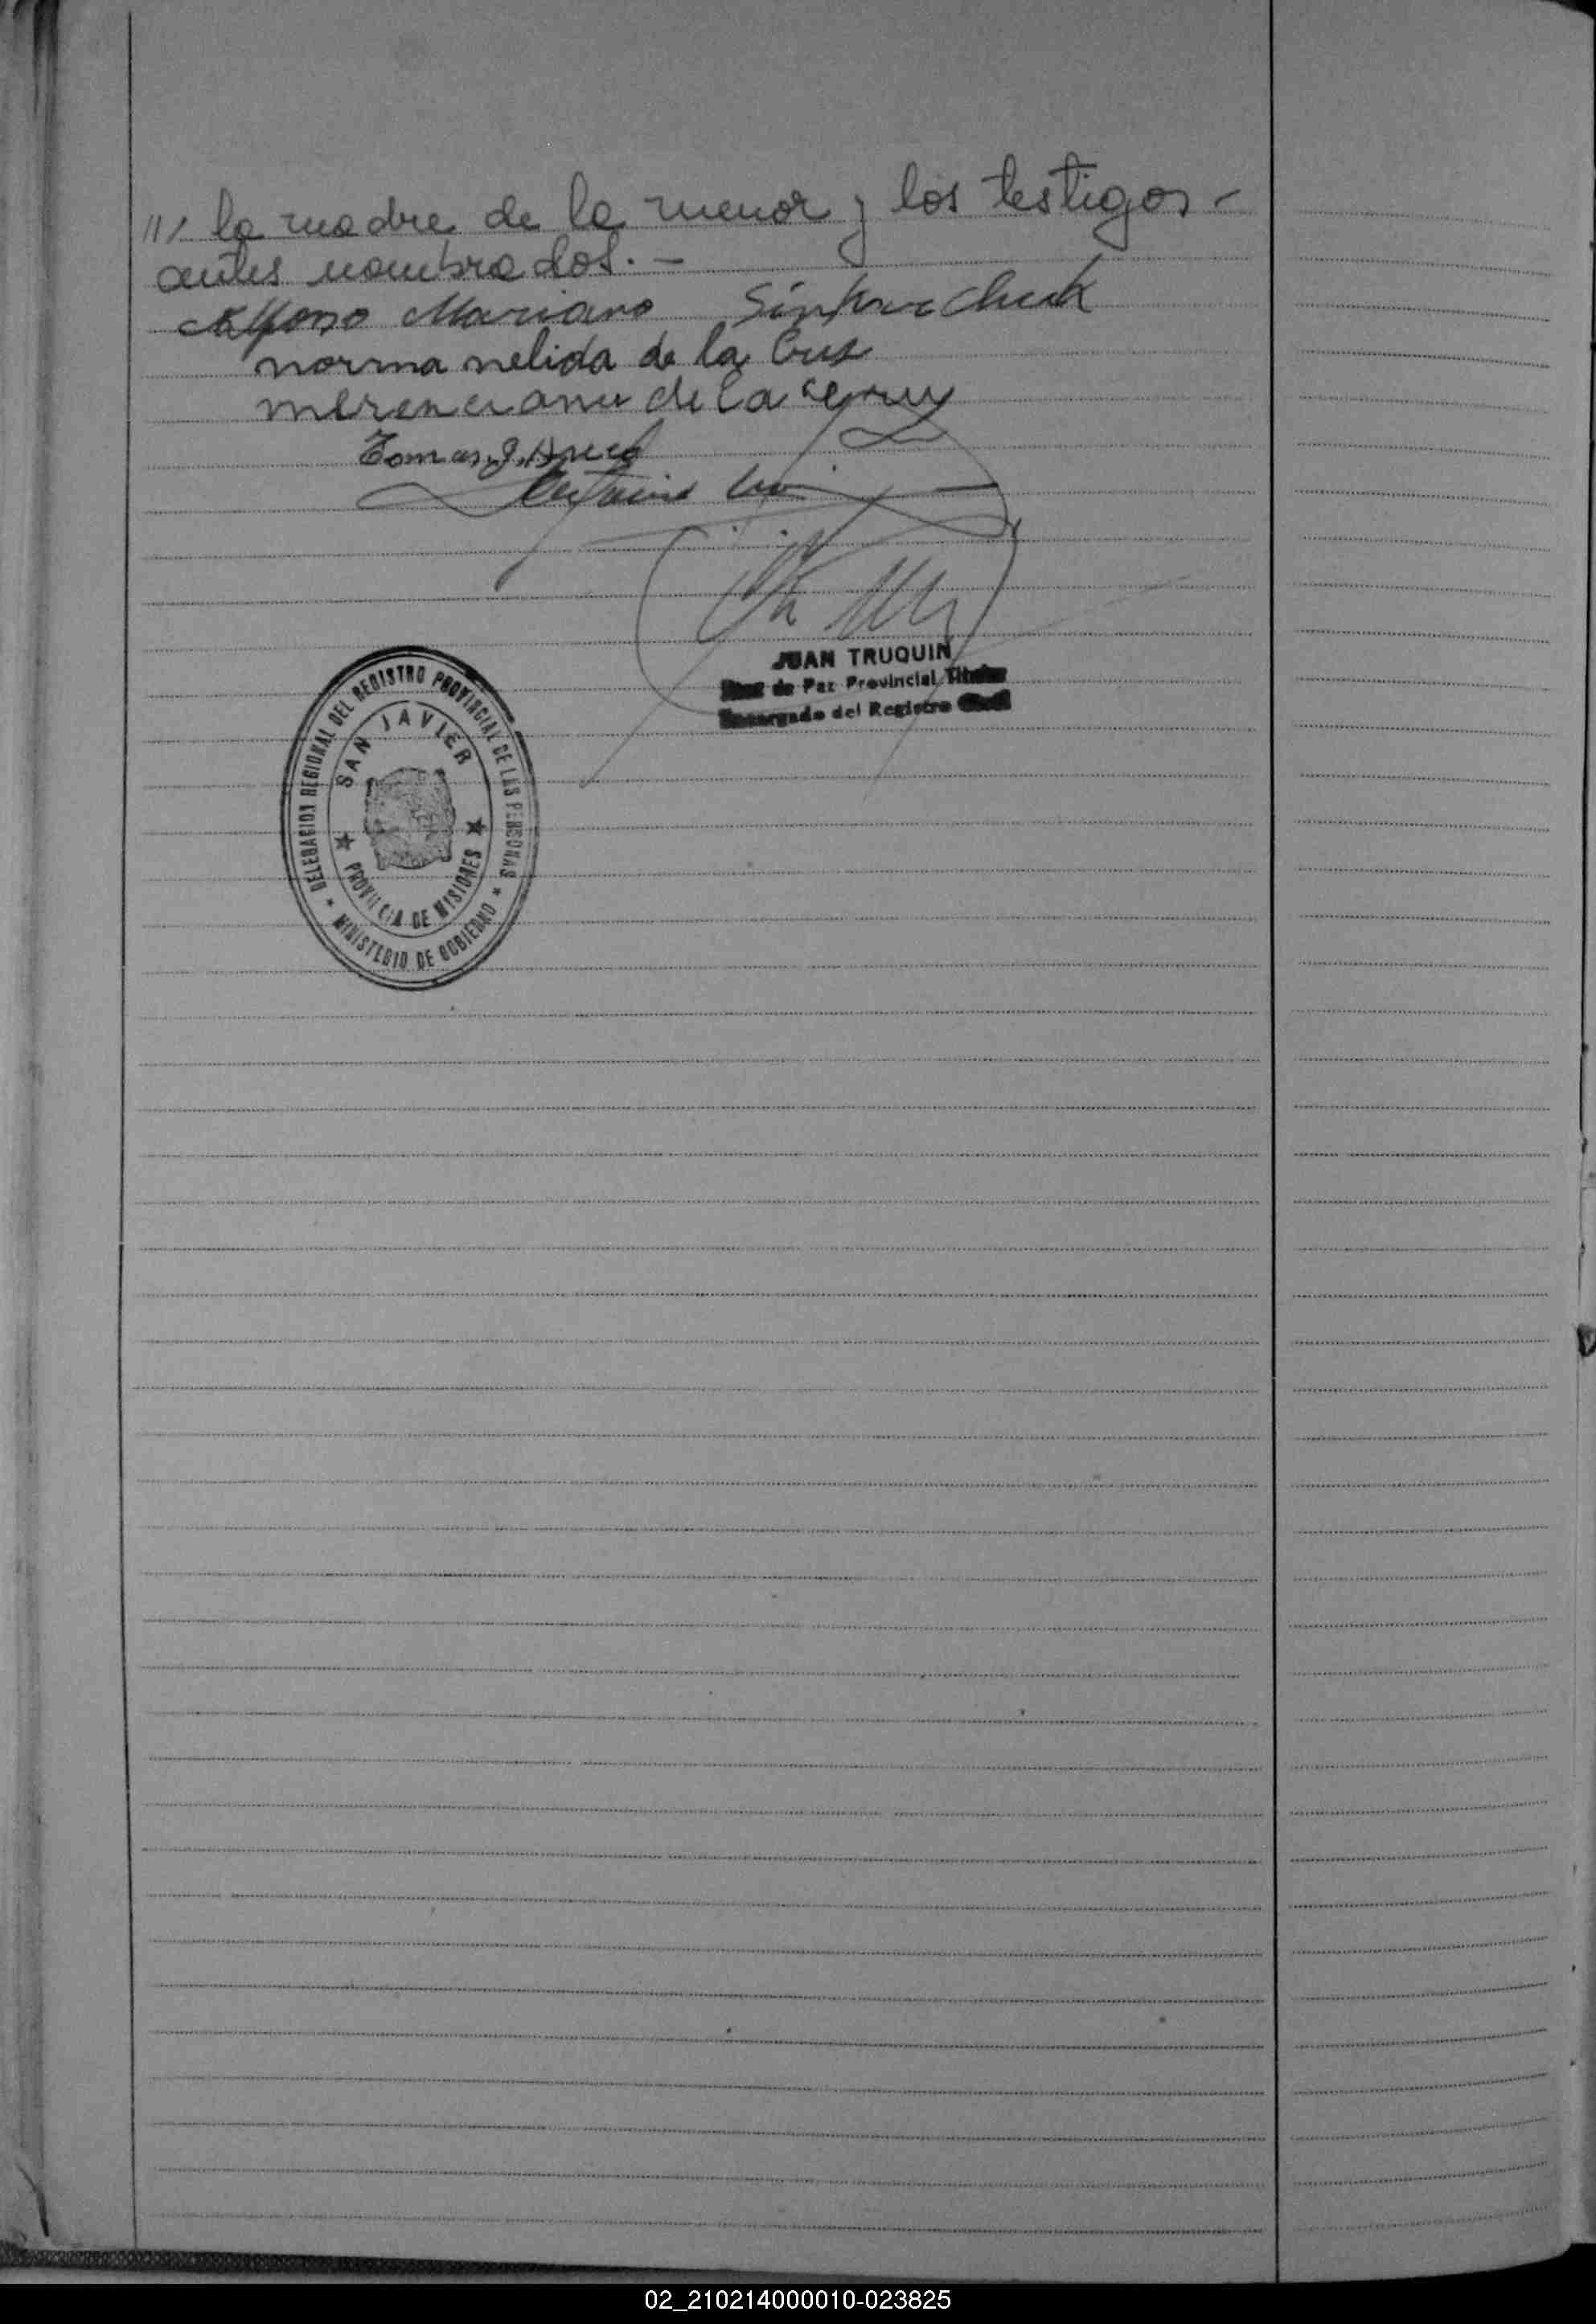 /// la madre de la menor y los testigos -
antes nombrados. -
Alfonso Mariano Sinkovchuk
norma nelida de la Crus
merenciana de la cruz
Tomas
JUAN TRUQUIN
Juez de Paz Provincial Titular
Encargado del Registro Civil
DELEGACION REGIONAL DEL REGISTRO PROVINCIAL DE LAS PERSONAS
SAN JAVIER
PROVINCIA DE MISIONES
* MINISTERIO DE GOBIERNO *
02_210214000010-023825